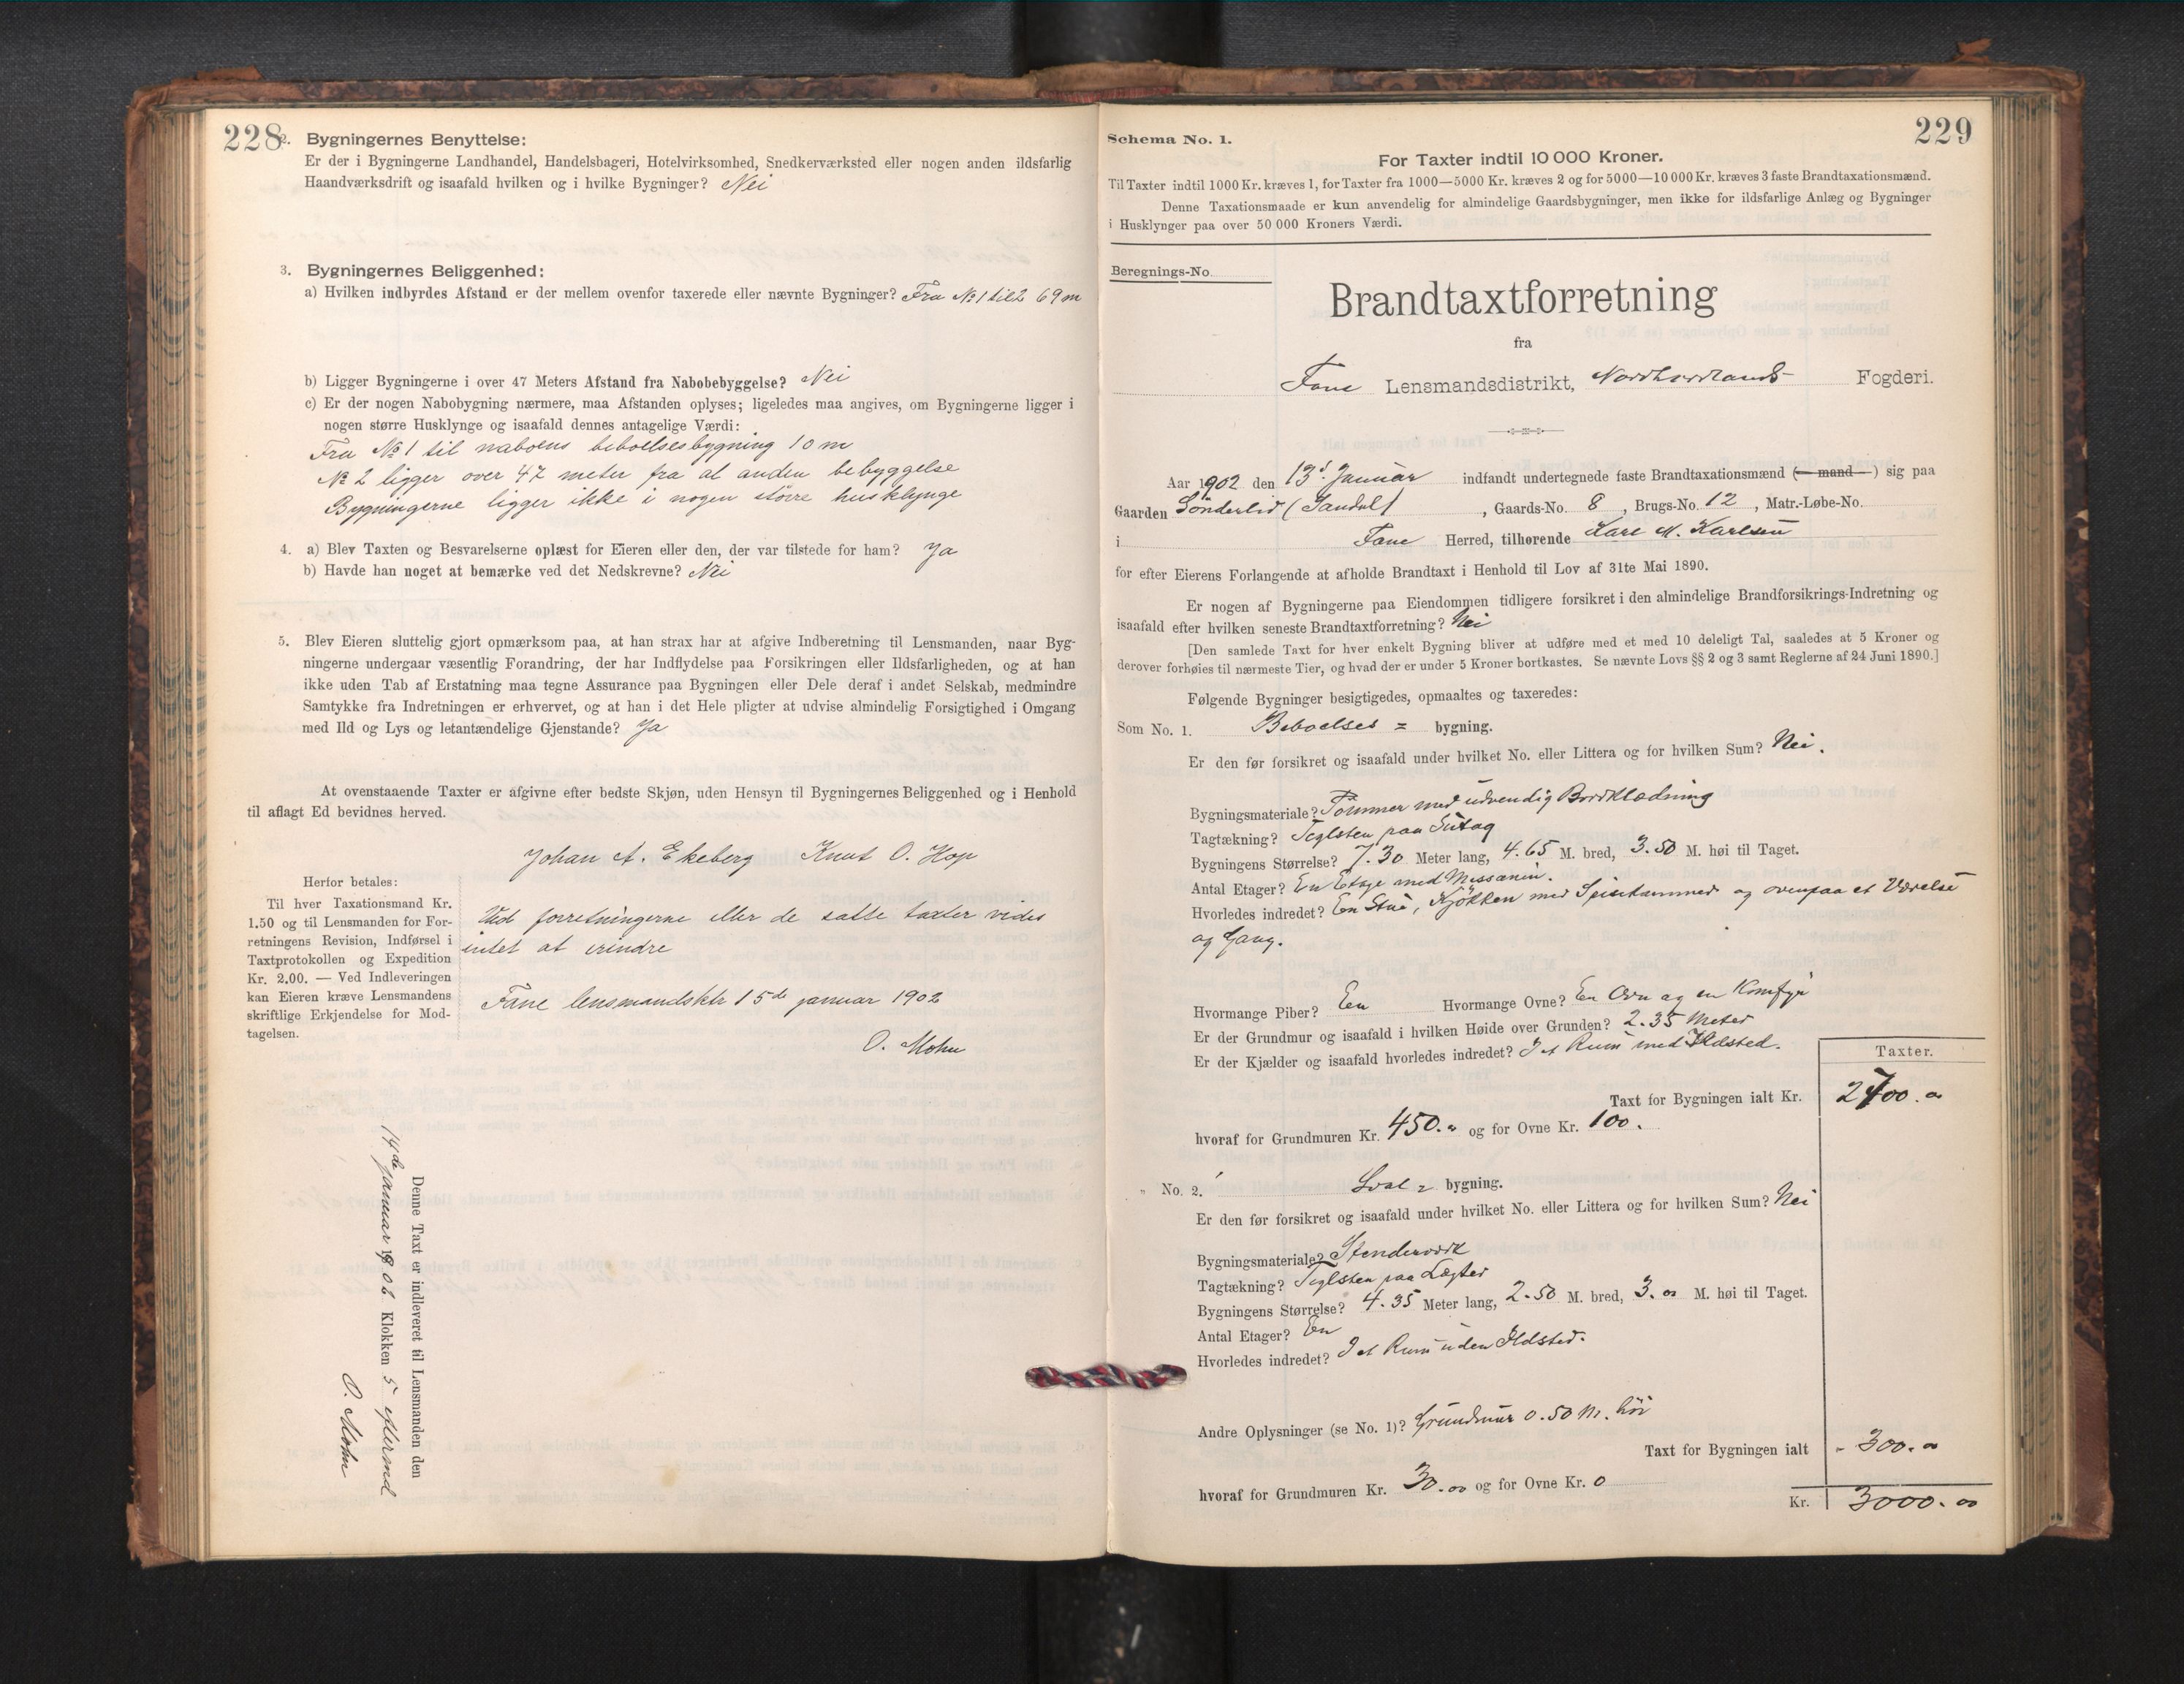 228
2. Bygningernes Benyttelse:
Er der i Bygningerne Landhandel, Handelsbageri, Hotelvirksomhed, Snedkerværksted eller nogen anden ildsfarlig
Haandværksdrift og isaafald hvilken og i hvilke Bygninger? Nei
3. Bygningernes Beliggenhed:
a) Hvilken indbyrdes Afstand er der mellem ovenfor taxerede eller nævnte Bygninger? Fra No 1 til 2 69 m
b) Ligger Bygningerne i over 47 Meters Afstand fra Nabobebyggelse? Nei
c) Er der nogen Nabobygning nærmere, maa Afstanden oplyses; ligeledes maa angives, om Bygningerne ligger i
nogen større Husklynge og isaafald dennes antagelige Værdi:
Fra No 1 til naboens beboelsesbygning 10 m
No 2 ligger over 47 meter fra al anden bebyggelse
Bygningerne ligger ikke i nogen større husklynge
4. a) Blev Taxten og Besvarelserne oplæst for Eieren eller den, der var tilstede for ham? Ja
b) Havde han noget at bemærke ved det Nedskrevne? Nei
5. Blev Eieren sluttelig gjort opmærksom paa, at han strax har at afgive Indberetning til Lensmanden, naar Byg-
ningerne undergaar væsentlig Forandring, der har Indflydelse paa Forsikringen eller Ildsfarligheden, og at han
ikke uden Tab af Erstatning maa tegne Assurance paa Bygningen eller Dele deraf i andet Selskab, medmindre
Samtykke fra Indretningen er erhvervet, og at han i det Hele pligter at udvise almindelig Forsigtighed i Omgang
med Ild og Lys og letantændelige Gjenstande? Ja
At ovenstaaende Taxter er afgivne efter bedste Skjøn, uden Hensyn til Bygningernes Beliggenhed og i Henhold
til aflagt Ed bevidnes herved.
Johan A. Ekeberg Knut O. Hop
Herfor betales:
Til hver Taxationsmand Kr.
1.50 og til Lensmanden for For-
retningens Revision, Indførsel i
Taxtprotokollen og Expedition
Kr. 2.00. — Ved Indleveringen
kan Eieren kræve Lensmandens
skriftlige Erkjendelse for Mod-
tagelsen.
Ved forretningerne eller de satte taxter vides
intet at erindre
Fane lensmandsktr 15de januar 1902
O. Mohn
Denne Taxt er indleveret til Lensmanden den
14de januar 1902 Klokken 5 eftermd
O. Mohn
229
Schema No. 1.
For Taxter indtil 10 000 Kroner.
Til Taxter indtil 1000 Kr. kræves 1, for Taxter fra 1000—5000 Kr. kræves 2 og for 5000—10 000 Kr. kræves 3 faste Brandtaxationsmænd.
Denne Taxationsmaade er kun anvendelig for almindelige Gaardsbygninger, men ikke for ildsfarlige Anlæg og Bygninger
i Husklynger paa over 50 000 Kroners Værdi.
Beregnings-No.
Brandtaxtforretning
fra
Fane Lensmandsdistrikt, Nordhordlands Fogderi.
Aar 1902 den 13de Januar indfandt undertegnede faste Brandtaxationsmænd (mand) sig paa
Gaarden Sönderlid (Sandal), Gaards-No. 8, Brugs-No. 12, Matr.-Løbe-No.
i Fane Herred, tilhørende Karl M. Karlsen
for efter Eierens Forlangende at afholde Brandtaxt i Henhold til Lov af 31te Mai 1890.
Er nogen af Bygningerne paa Eiendommen tidligere forsikret i den almindelige Brandforsikrings-Indretning og
isaafald efter hvilken seneste Brandtaxtforretning? Nei
[Den samlede Taxt for hver enkelt Bygning bliver at udføre med et med 10 deleligt Tal, saaledes at 5 Kroner og
derover forhøies til nærmeste Tier, og hvad der er under 5 Kroner bortkastes. Se nævnte Lovs §§ 2 og 3 samt Reglerne af 24 Juni 1890.]
Følgende Bygninger besigtigedes, opmaaltes og taxeredes:
Som No. 1. Beboelses = bygning.
Er den før forsikret og isaafald under hvilket No. eller Littera og for hvilken Sum? Nei.
Bygningsmateriale? Tömmer med udvendig Bordklædning
Tagtækning? Teglsten paa Sutag
Bygningens Størrelse? 7.30 Meter lang, 4.65 M. bred, 3.50 M. høi til Taget.
Antal Etager? En Etage med Messanin.
Hvorledes indredet? En Stue, Kjökken med Spisekammer og ovenpaa et Værelse
og Gang.
Hvormange Piber? Een Hvormange Ovne? En Ovn og en Komfyr
Er der Grundmur og isaafald i hvilken Høide over Grunden? 2.35 Meter
Er der Kjælder og isaafald hvorledes indredet? I et Rum med Ildsted.
Taxter.
Taxt for Bygningen ialt Kr. 2700.00
hvoraf for Grundmuren Kr. 450.00 og for Ovne Kr. 100.
" No. 2. Sval = bygning.
Er den før forsikret og isaafald under hvilket No. eller Littera og for hvilken Sum? Nei
Bygningsmateriale? Stenderværk
Tagtækning? Teglsten paa Lægter
Bygningens Størrelse? 4.35 Meter lang, 2.50 M. bred, 3.00 M. høi til Taget.
Antal Etager? En
Hvorledes indredet? I et Rum uden Ildsted.
Andre Oplysninger (se No. 1)? Grundmur 0.50 M. höi
Taxt for Bygningen ialt - 300.00
hvoraf for Grundmuren Kr. 30.00 og for Ovne Kr. 0
Kr. 3000.00